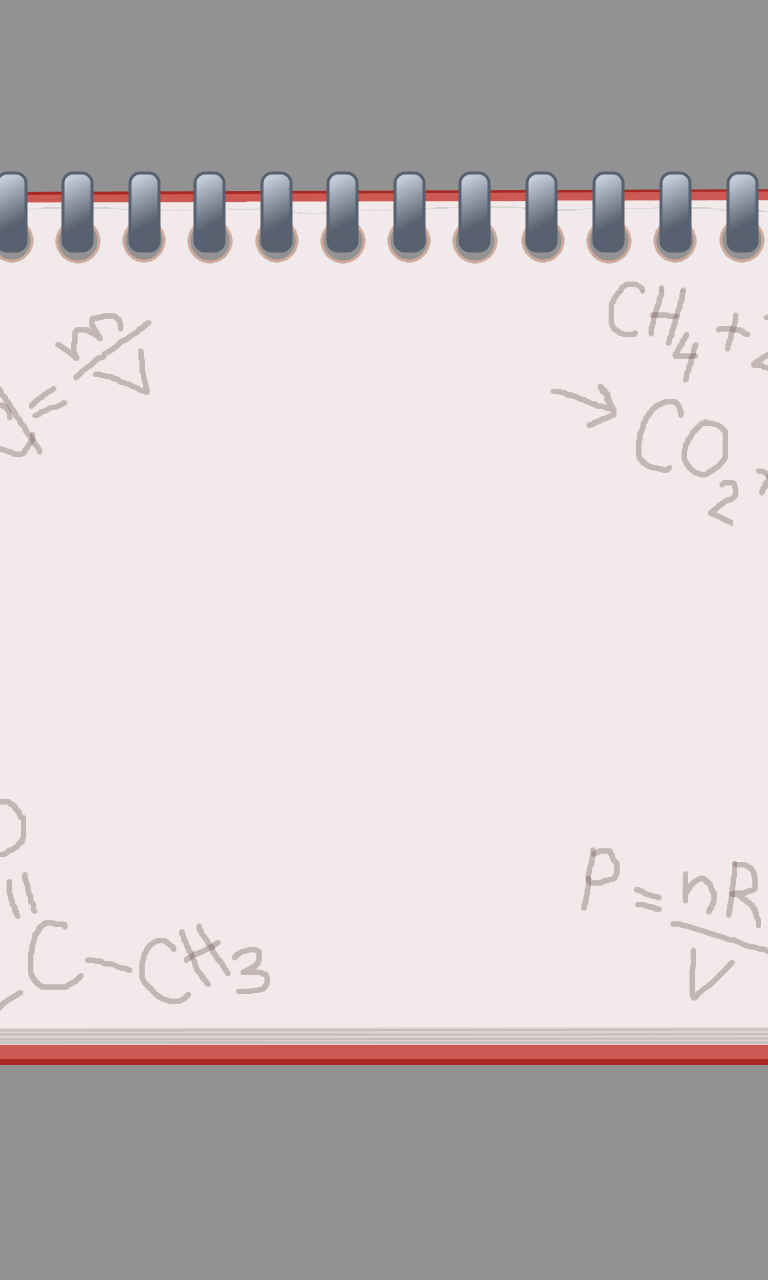 = m/V
CH₄ +
→ CO₂
O
=
C - CH₃
P = nR
V